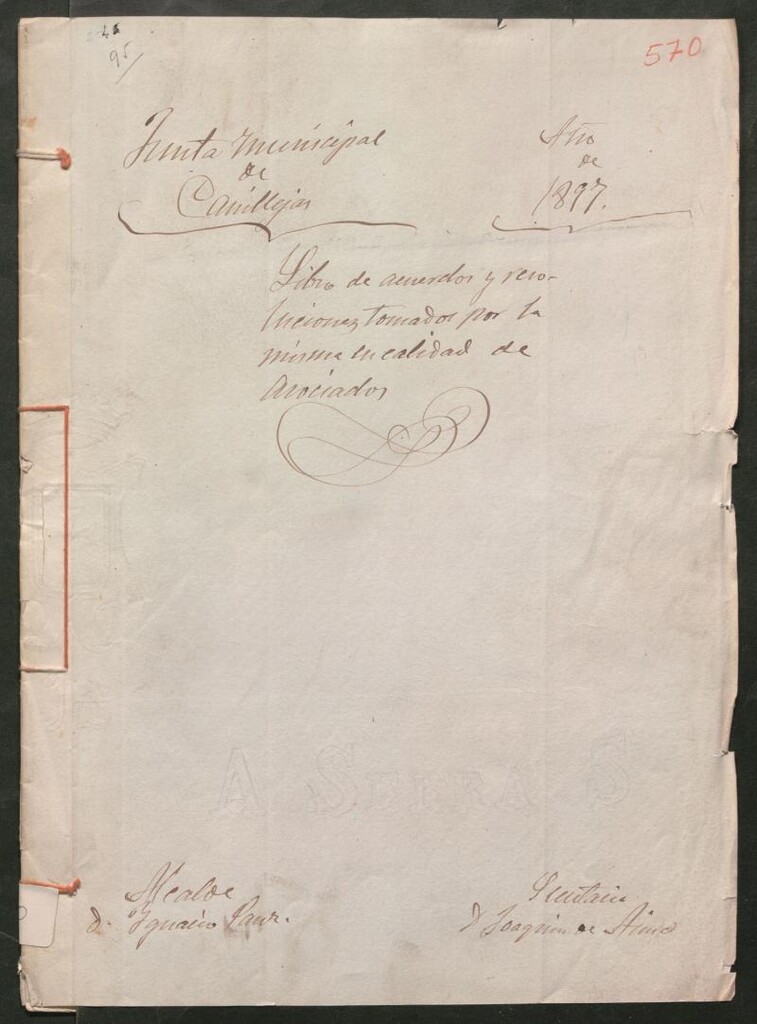 95/
570
Junta municipal
de
Canillejas
Año
de
1897.
Libro de acuerdos y reso-
luciones tomados por la
misma en calidad de
Asociados
A SERRA
Alcalde
D. Ignacio
Secretario
D Joaquin de